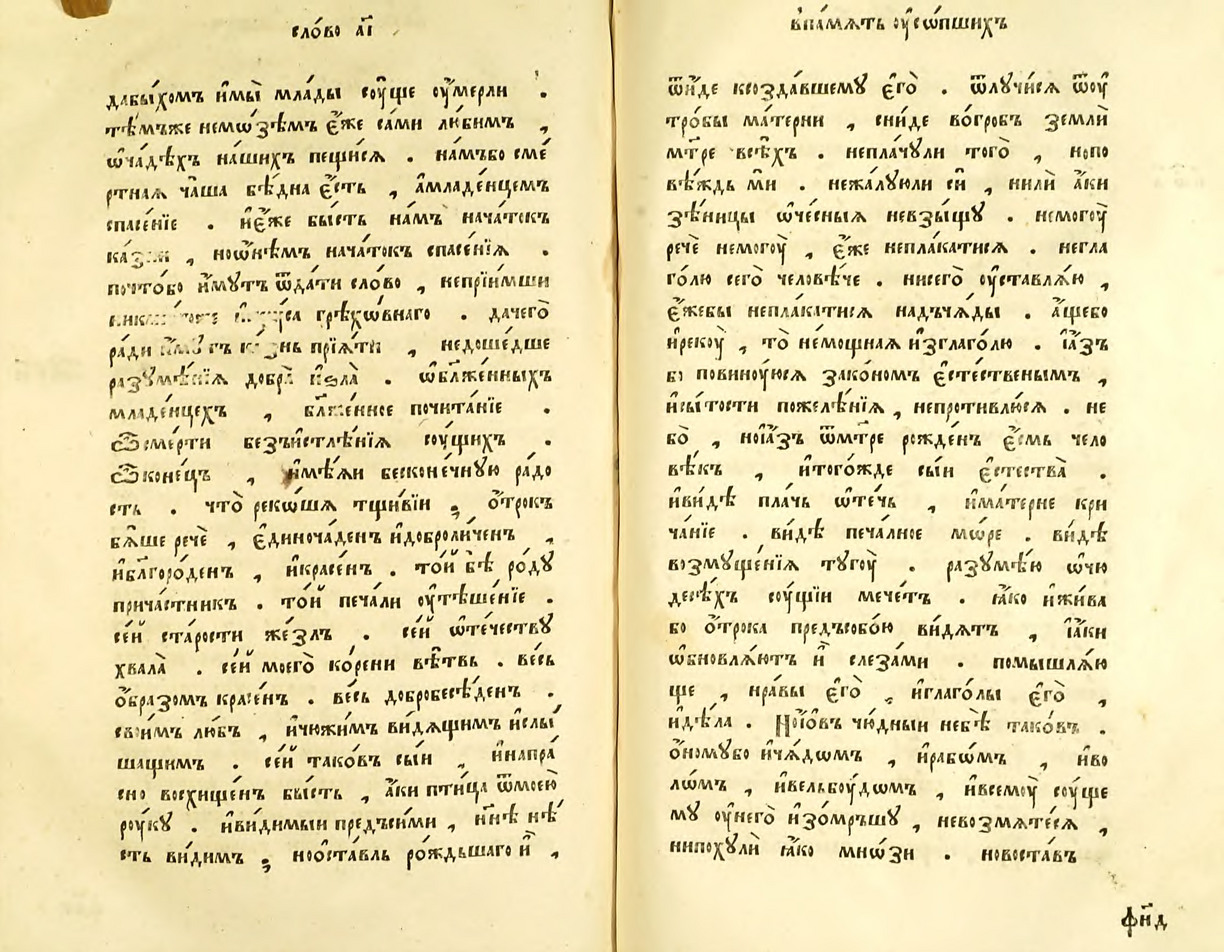 сло́во а҃і
дабы́хомъ и҆мы̀ мла́ды соу́ще оу҆́мерли .
тѣ́мъже немѡ́зѣмъ є҆́же са́ми лю́бимъ ,
ѡ҆ча́дѣхъ на́шихъ пещи́сѧ . на́мъбо сме́
ртнаѧ ча́ша бѣ́дна є҆́сть , а҆младе́нцемъ
спасе́нїе . и҆є҆́же бы́сть на́мъ нача́токъ
, ноѡ҆нѣ́мъ нача́токъ спасе́нїѧ .
почто́бо и҆́мꙋтъ ѿда́ти сло́во , непрїи́мши
грѣхѡ́внаго . дачего̀
ради прїѧ́ти , недоше́дше
разꙋмѣ́нїѧ добра̀ и҆ѕла̀ . ѡ҆бл҃же́нныхъ
младе́нцехъ , бл҃же́нное почита́нїе .
Ѿсме́рти безъи҆стлѣ́нїѧ соу́щихъ .
Ѿконе́цъ , и҆мѣ́ѧи бесконе́чнꙋю ра́до
сть . что̀ реко́ша тщи́вїи ; о҆́трокъ
бѧ́ше речѐ , є҆диноча́денъ и҆доброли́ченъ ,
и҆бл҃горо́денъ , и҆красе́нъ . то́й бѣ̀ ро́дꙋ
прича́стникъ . то́й печа́ли оу҆тѣше́нїе .
се́й ста́рости же́злъ . се́й ѻ҆те́чествꙋ
хвала̀ . се́й моего̀ ко́рени вѣ́твь . ве́сь
о҆́бразомъ красе́нъ . ве́сь добробесѣ́денъ .
свои́мъ лю́бъ , и҆чюжи́мъ ви́дѧщимъ и҆слы́
шащимъ . се́й тако́въ сы́и , и҆напра́
сно восхище́нъ бы́сть , а҆́ки пти́ца ѿмоею̀
роу́кꙋ . и҆ви́димыи предъси́ми , и҆нн҃ѣ нѣ́
сть ви́димъ ; ноо҆ста́вль ро́ждьшаго и҆̀ ,
впа́мѧть оу҆со́пшихъ
ѿи́де ксозда́вшемꙋ є҆го̀ . ѿлꙋчи́сѧ ѿоу҆
тро́бы ма́терни , сни́де во́гробъ землѝ
мт҃ре всѣ́хъ . непла́чꙋли того̀ , нопо
вѣ́ждь ми . нежа́лꙋюли си , нилѝ а҆́ки
зѣ́ницы ѻ҆че́сныѧ невзы́щꙋ . немогоу̀
речѐ немогоу̀ , є҆́же непла́катисѧ . негла
го́лю сего̀ человѣ́че . нисего̀ оу҆ставлѧ́ю ,
є҆́жебы непла́катисѧ надъча́ды . а҆́щебо
и҆рекоу̀ , то̀ немощнаѧ и҆зглаго́лю . і҆а́зъ
бо повиноу́юсѧ зако́номъ є҆сте́ственымъ ,
и҆сы́тости пожелѣ́нїѧ , непроти́влюсѧ . не
бо̀ , ноі҆а́зъ ѿмт҃ре рожде́нъ є҆́смь чело
вѣ́къ , и҆того́жде сы́и є҆стества̀ .
и҆ви́дѣ пла́чь ѻ҆те́чь , и҆ма́терне кри
ча́нїе . ви́дѣ печа́лное мо́ре . ви́дѣ
возмꙋще́нїѧ тꙋгоу̀ . разꙋмѣ́ю ѻ҆чю
десѣ́хъ соу́щїи мече́тъ . ꙗ҆́ко и҆жи́ва
бо о҆́трока предъсобо́ю ви́дѧтъ , і҆а́ки
ѡ҆бновлѧ́ютъ и҆̀ слеза́ми . помышлѧ́ю
ще , нра́вы є҆го̀ , и҆глаго́лы є҆го̀ ,
и҆дѣ́ла . Ноі҆о́въ чю́дныи небѣ̀ тако́въ .
о҆́номꙋбо и҆ча́дѡмъ , и҆рабѡ́мъ , и҆во
лѡ́мъ , и҆вельбоу́дѡмъ , и҆всемоу̀ соу́ще
мꙋ оу҆него̀ и҆зо́мръшꙋ , невозмѧте́сѧ ,
нипохꙋлѝ ꙗ҆́ко мно́зи . новоста́въ
фн҃д